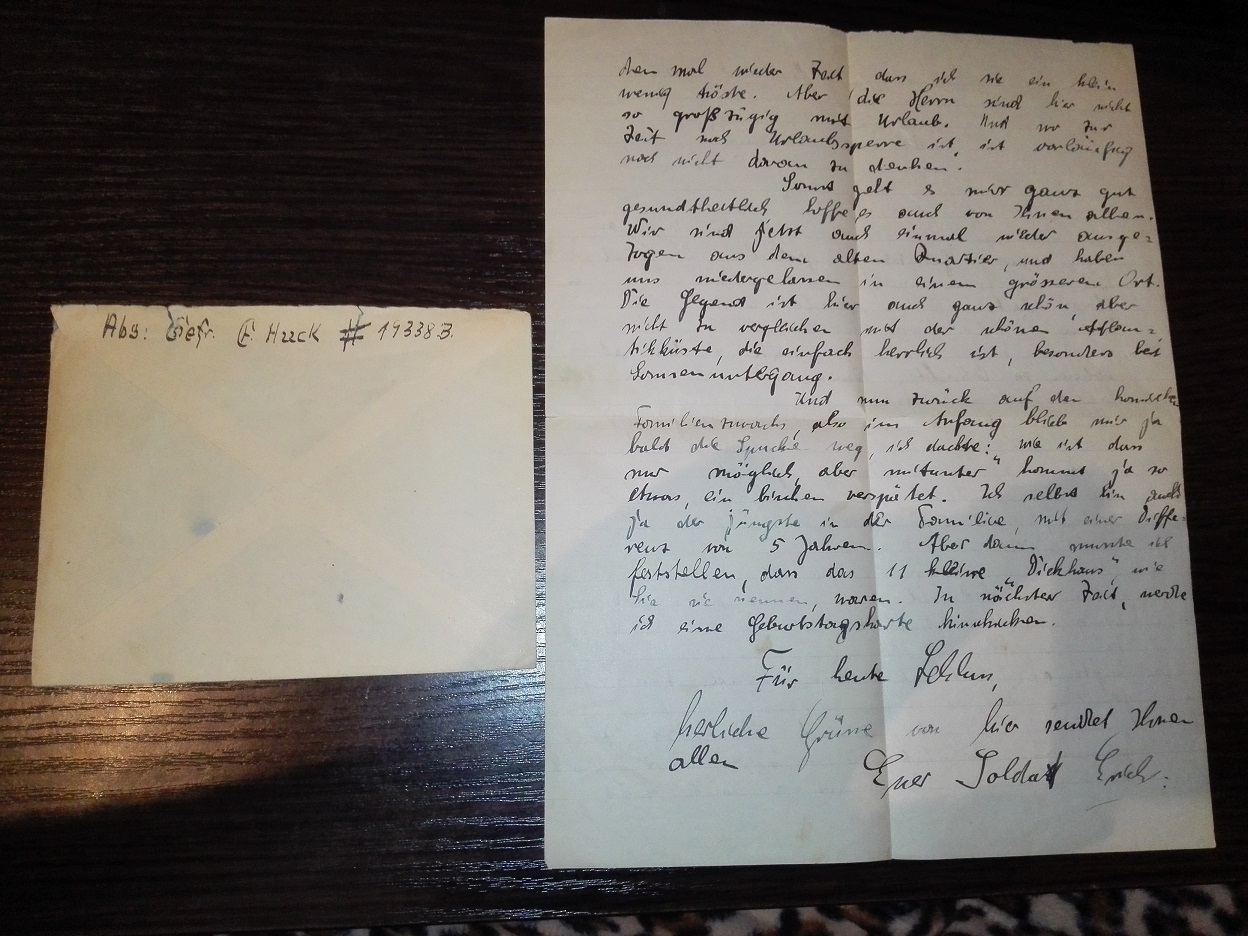 Abs: Gefr. E. Huck # 19338 B.
den mal wieder Zeit dass ich sie ein klein
wenig tröste. Aber die Herrn sind hier nicht
so großzügig mit Urlaub. Und wo zur
Zeit noch Urlaubssperre ist, ist vorläufig
noch nicht daran zu denken.
Sonst geht es mir ganz gut
gesundtheitlich hoffe es auch von Ihnen allen.
Wir sind jetzt auch einmal wieder ausge=
zogen aus dem alten Quartier, und haben
uns niedergelassen in einem grösseren Ort.
Die Gegend ist hier auch ganz schön, aber
nicht zu vergleichen mit der schönen Atlan=
tikküste, die einfach herrlich ist, besonders bei
Sonnenuntergang.
Und nun zurück auf den
Familienzuwachs, also im Anfang blieb mir ja
bald die Spucke weg, ich dachte: wie ist das
nur möglich, aber mitunter" kommt ja so
etwas, ein bischen verspätet. Ich selbst bin auch
ja der jüngste in der Familie, mit einer Diffe=
renz von 5 Jahren. Aber dann musste ich
feststellen, dass das 11 kleine „Dickhaus", wie
Sie sie nennen, waren. In nächster Zeit, werde
ich eine Geburtstagskarte hinschicken.
Für heute Schluss,
herliche Grüsse von hier sendet Ihnen
allen
Euer Soldat Erich.